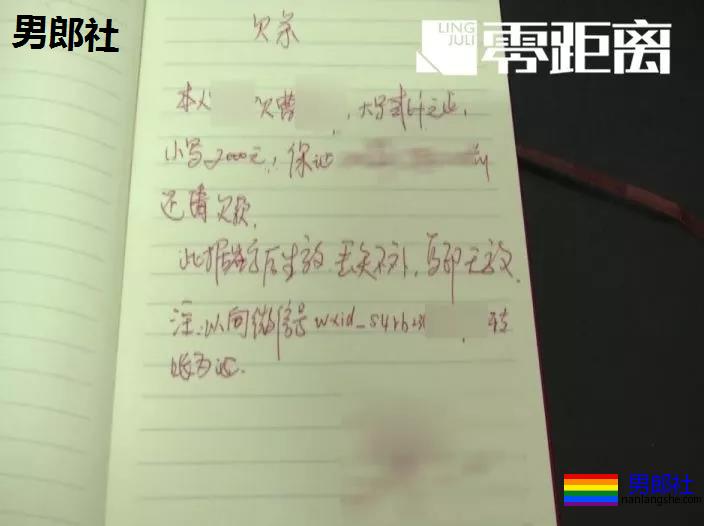 男郎社
LING
JULI
零距离
欠条
本人 欠曹 , 大写贰仟元正,
小写2000元, 保证
还清欠款,
此据签字后生效 丢失不补,
注: 以向微信号 wxid_s4rb 转
账为证.
男郎社
nanlangshe.com